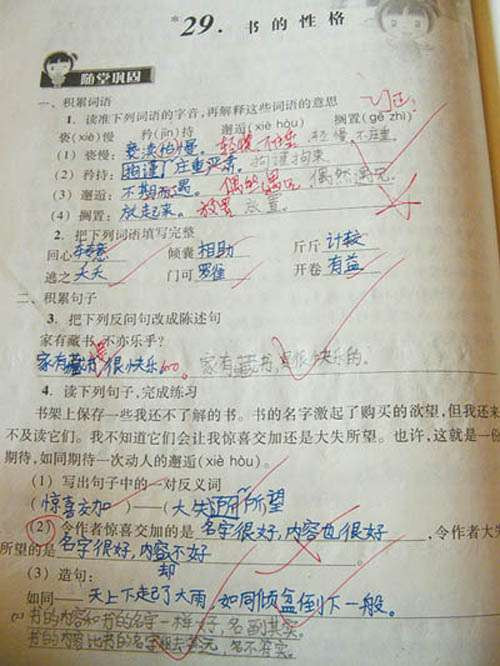 *29. 书的性格
随堂巩固
一、积累词语
1. 读准下列词语的字音,再解释这些词语的意思
亵(xiè)慢 矜(jīn)持 邂逅(xiè hòu) 搁置(gē zhì)
(1) 亵慢: 亵渎怡慢。 轻慢不庄 轻慢,不庄重。
(2) 矜持: 拘谨 庄重严肃。 拘谨拘束。
(3) 邂逅: 不期而遇。 偶然遇见 偶然遇见。
(4) 搁置: 放起来。 放置 放置。
2. 把下列词语填写完整
回心转意 倾囊相助 斤斤计较
逃之夭夭 门可罗雀 开卷有益
二、积累句子
3. 把下列反问句改成陈述句
家有藏书,不亦乐乎?
家有藏书,很快乐。 家有藏书,是很快乐的。
4. 读下列句子,完成练习
书架上保存一些我还不了解的书。书的名字激起了购买的欲望,但我还来
不及读它们。我不知道它们会让我惊喜交加还是大失所望。也许,这就是一份
期待,如同期待一次动人的邂逅(xiè hòu)。
(1) 写出句子中的一对反义词
(惊喜交加)——(大失所望
(2) 令作者惊喜交加的是 名字很好,内容也很好 ,令作者大失
所望的是 名字很好,内容不好 。
(3) 造句: 却
如同——天上下起了大雨,如同倾盆倒下一般。
书的内容和书的名字一样好,名副其实。
书的内容比书的名字相去甚远,名不符实。